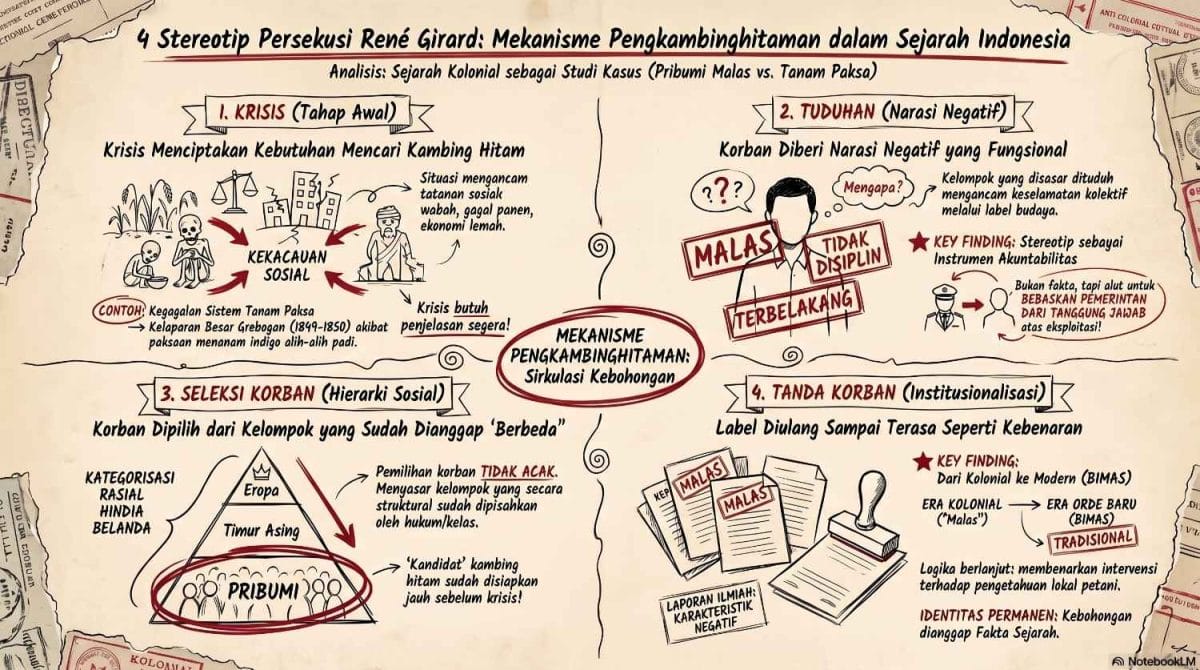 4 Stereotip Persekusi René Girard: Mekanisme Pengkambinghitaman dalam Sejarah Indonesia
Analisis: Sejarah Kolonial sebagai Studi Kasus (Pribumi Malas vs. Tanam Paksa)
1. KRISIS (Tahap Awal)
Krisis Menciptakan Kebutuhan Mencari Kambing Hitam
Situasi mengancam
tatanan sosiak
wabah, gagal panen,
ekonomi lemah.
KEKACAUAN
SOSIAL
CONTOH: Kegagalan Sistem Tanam Paksa
→ Kelaparan Besar Grebogan (1849-1850) akibat
paksaan menanam indigo alih-alih padi.
Krisis butuh
penjelasan segera!
2. TUDUHAN (Narasi Negatif)
Korban Diberi Narasi Negatif yang Fungsional
???
Mengapa?
MALAS
TIDAK
DISIPLIN
TERBELAKANG
Kelompok yang disasar dituduh
mengancam keselamatan kolektif
melalui label budaya.
KEY FINDING: Stereotip sebagai
Instrumen Akuntabilitas
Bukan fakta, tapi alut untuk
BEBASKAN PEMERINTAN
DARI TANGGUNG JAWAB
atas eksploitasi!
MEKANISME
PENGKAMBINGHITAMAN:
Sirkulasi Kebohongan
3. SELEKSI KORBAN (Hierarki Sosial)
Korban Dipilih dari Kelompok yang Sudah Dianggap ‘Berbeda”
KATEGORISASI
RASIAL
HINDIA
BELANDA
Eropa
Timur Asing
PRIBUMI
Pemilihan korban TIDAK ACAK.
Menyasar kelompok yang secara
struktural sudah dipisahkan
oleh hukum/kelas.
‘Kandidat’ kambing
hitam sudah disiapkan
jauh sebelum krisis!
4. TANDA KORBAN (Institusionalisasi)
Label Diulang Sampai Terasa Seperti Kebenaran
KEP
MALAS
MALAS
LAPORAN ILMIAH:
KARAKTERISTIK
NEGATIF
KEY FINDING:
Dari Kolonial ke Modern (BIMAS)
ERA KOLONIAL → ERA ORDE BARU
("Malas") (BIMAS)
TRADISIONAL
Logika berlanjut: membenarkan intervensi
terhadap pengetahuan lokal petani.
IDENTITAS PERMANEN: Kebohongan
dianggap Fakta Sejarah.
KOLONIAL
NotebookLM